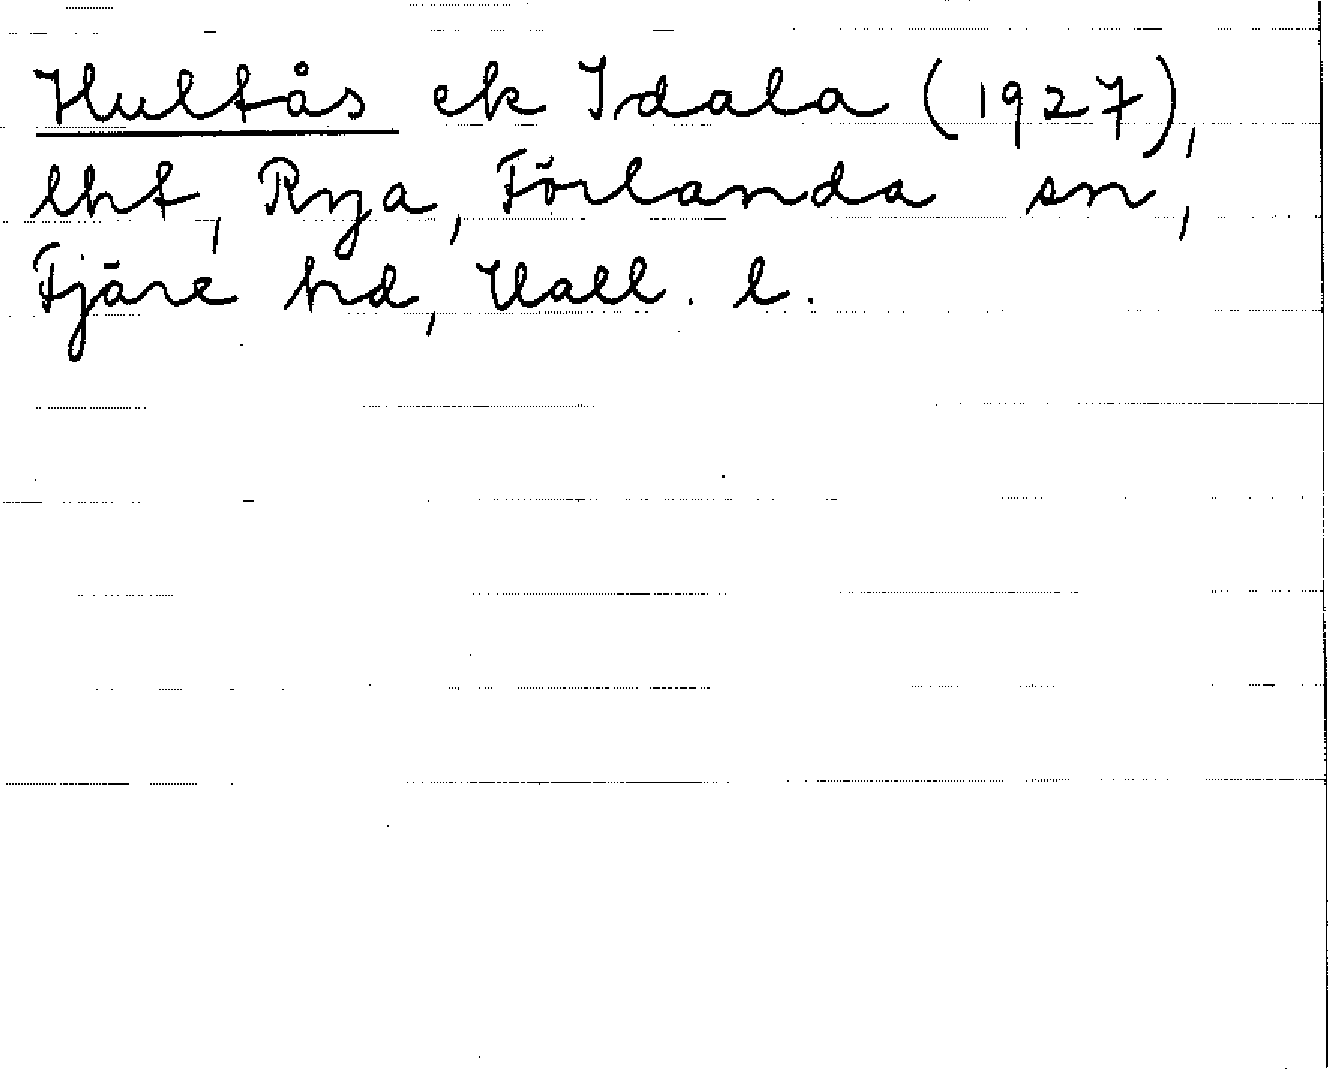 Hultås ek Idala (1927),
lht, Rya, Förlanda sn,
Fjäre hd, Hall. l.